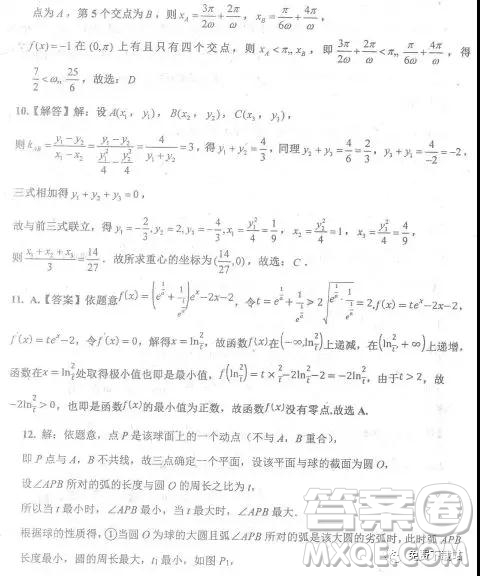 点为 A，第 5 个交点为 B，则 x_A = 3π/2ω + 2π/ω，x_B = π/6ω + 4π/ω，
∵ f(x)=-1 在 (0,π) 上有且只有四个交点，则 x_A < π ≤ x_B，即 3π/2ω + 2π/ω < π ≤ π/6ω + 4π/ω，得
7/2 < ω ≤ 25/6，故选：D
10.【解答】解：设 A(x₁，y₁)，B(x₂，y₂)，C(x₃，y₃)，
则 k_AB = (y₁-y₂)/(x₁-x₂) = (y₁-y₂)/(y₁²/4 - y₂²/4) = 4/(y₁+y₂) = 3，得 y₁+y₂ = 4/3，同理 y₂+y₃ = 4/6 = 2/3，y₃+y₁ = 4/-2 = -2，
三式相加得 y₁+y₂+y₃=0，
故与前三式联立，得 y₁ = -2/3, y₂ = 2, y₃ = -4/3, x₁ = y₁²/4 = 1/9，x₂ = y₂²/4 = 1，x₃ = y₃²/4 = 4/9，
则 (x₁+x₂+x₃)/3 = 14/27．故所求重心的坐标为 (14/27,0)，故选：C．
11. A.【答案】依题意 f(x) = (
)eˣ-2x-2，令 t =
> 2
= 2, f(x) = teˣ-2x-2，
f′(x) = teˣ-2，令 f′(x)=0，解得 x = ln 2/t，故函数 f(x) 在 (-∞,ln 2/t) 上递减，在 (ln 2/t,+∞) 上递增，
函数在 x = ln 2/t 处取得极小值也即是最小值，f(ln 2/t) = t × 2/t - 2ln 2/t - 2 = -2ln 2/t，由于 t > 2，故
-2ln 2/t > 0，也即是函数 f(x) 的最小值为正数，故函数 f(x) 没有零点.故选 A.
12. 解：依题意，点 P 是该球面上的一个动点（不与 A，B 重合），
即 P 点与 A，B 不共线，故三点确定一个平面，设该平面与球的截面为圆 O，
设∠APB 所对的弧的长度与圆 O 的周长之比为 t，
所以当 t 最小时，∠APB 最小，当 t 最大时，∠APB 最大，
根据球的性质得，①当圆 O 为球的大圆且弧∠APB 所对的弧是该大圆的劣弧时，此时弧 APB
长度最小，圆的周长最大，t₁ 最小，如图 P₁，
答案圈